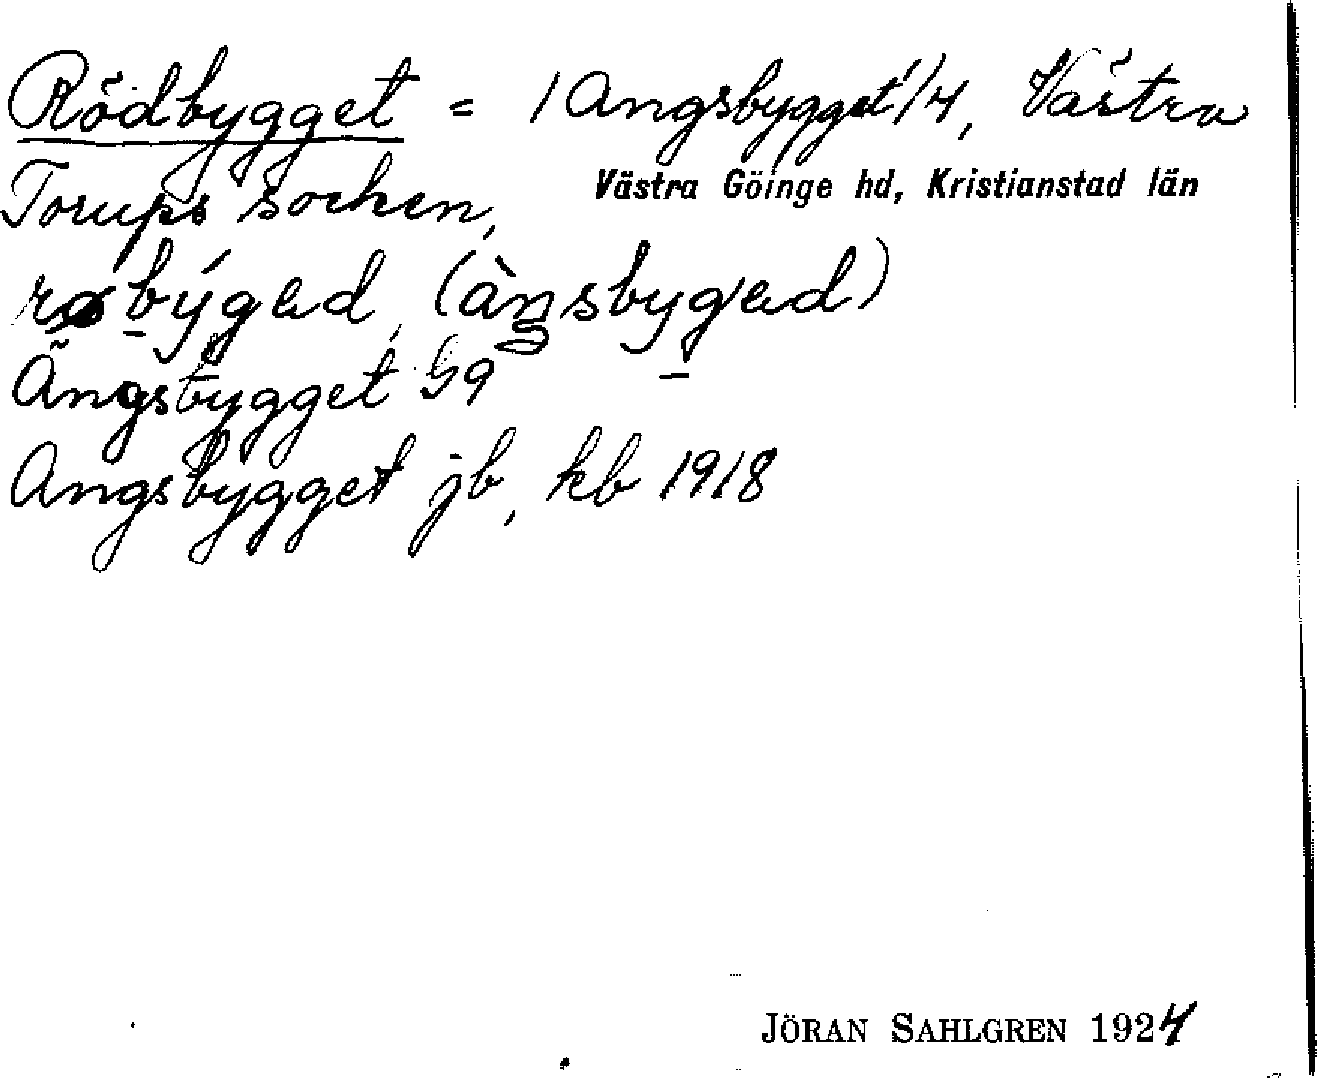 Rödbygget = 1 Angsbygget 1/4, Västra
Torups socken, Västra Göinge hd, Kristianstad län
røbýgəd, (àŋsbygəd)
Ängsbygget G9
Angsbygget jb, kb 1918
JÖRAN SAHLGREN 1924